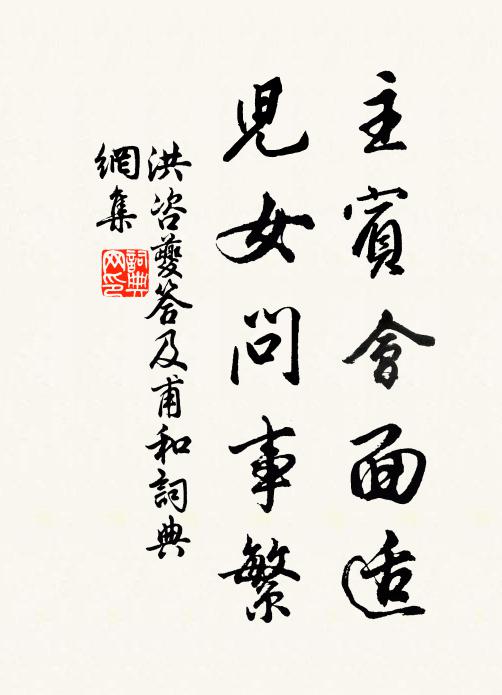 主賓會面适
兒女問事繁
洪咨夔答及甫和詞典
網集
詞典
网印